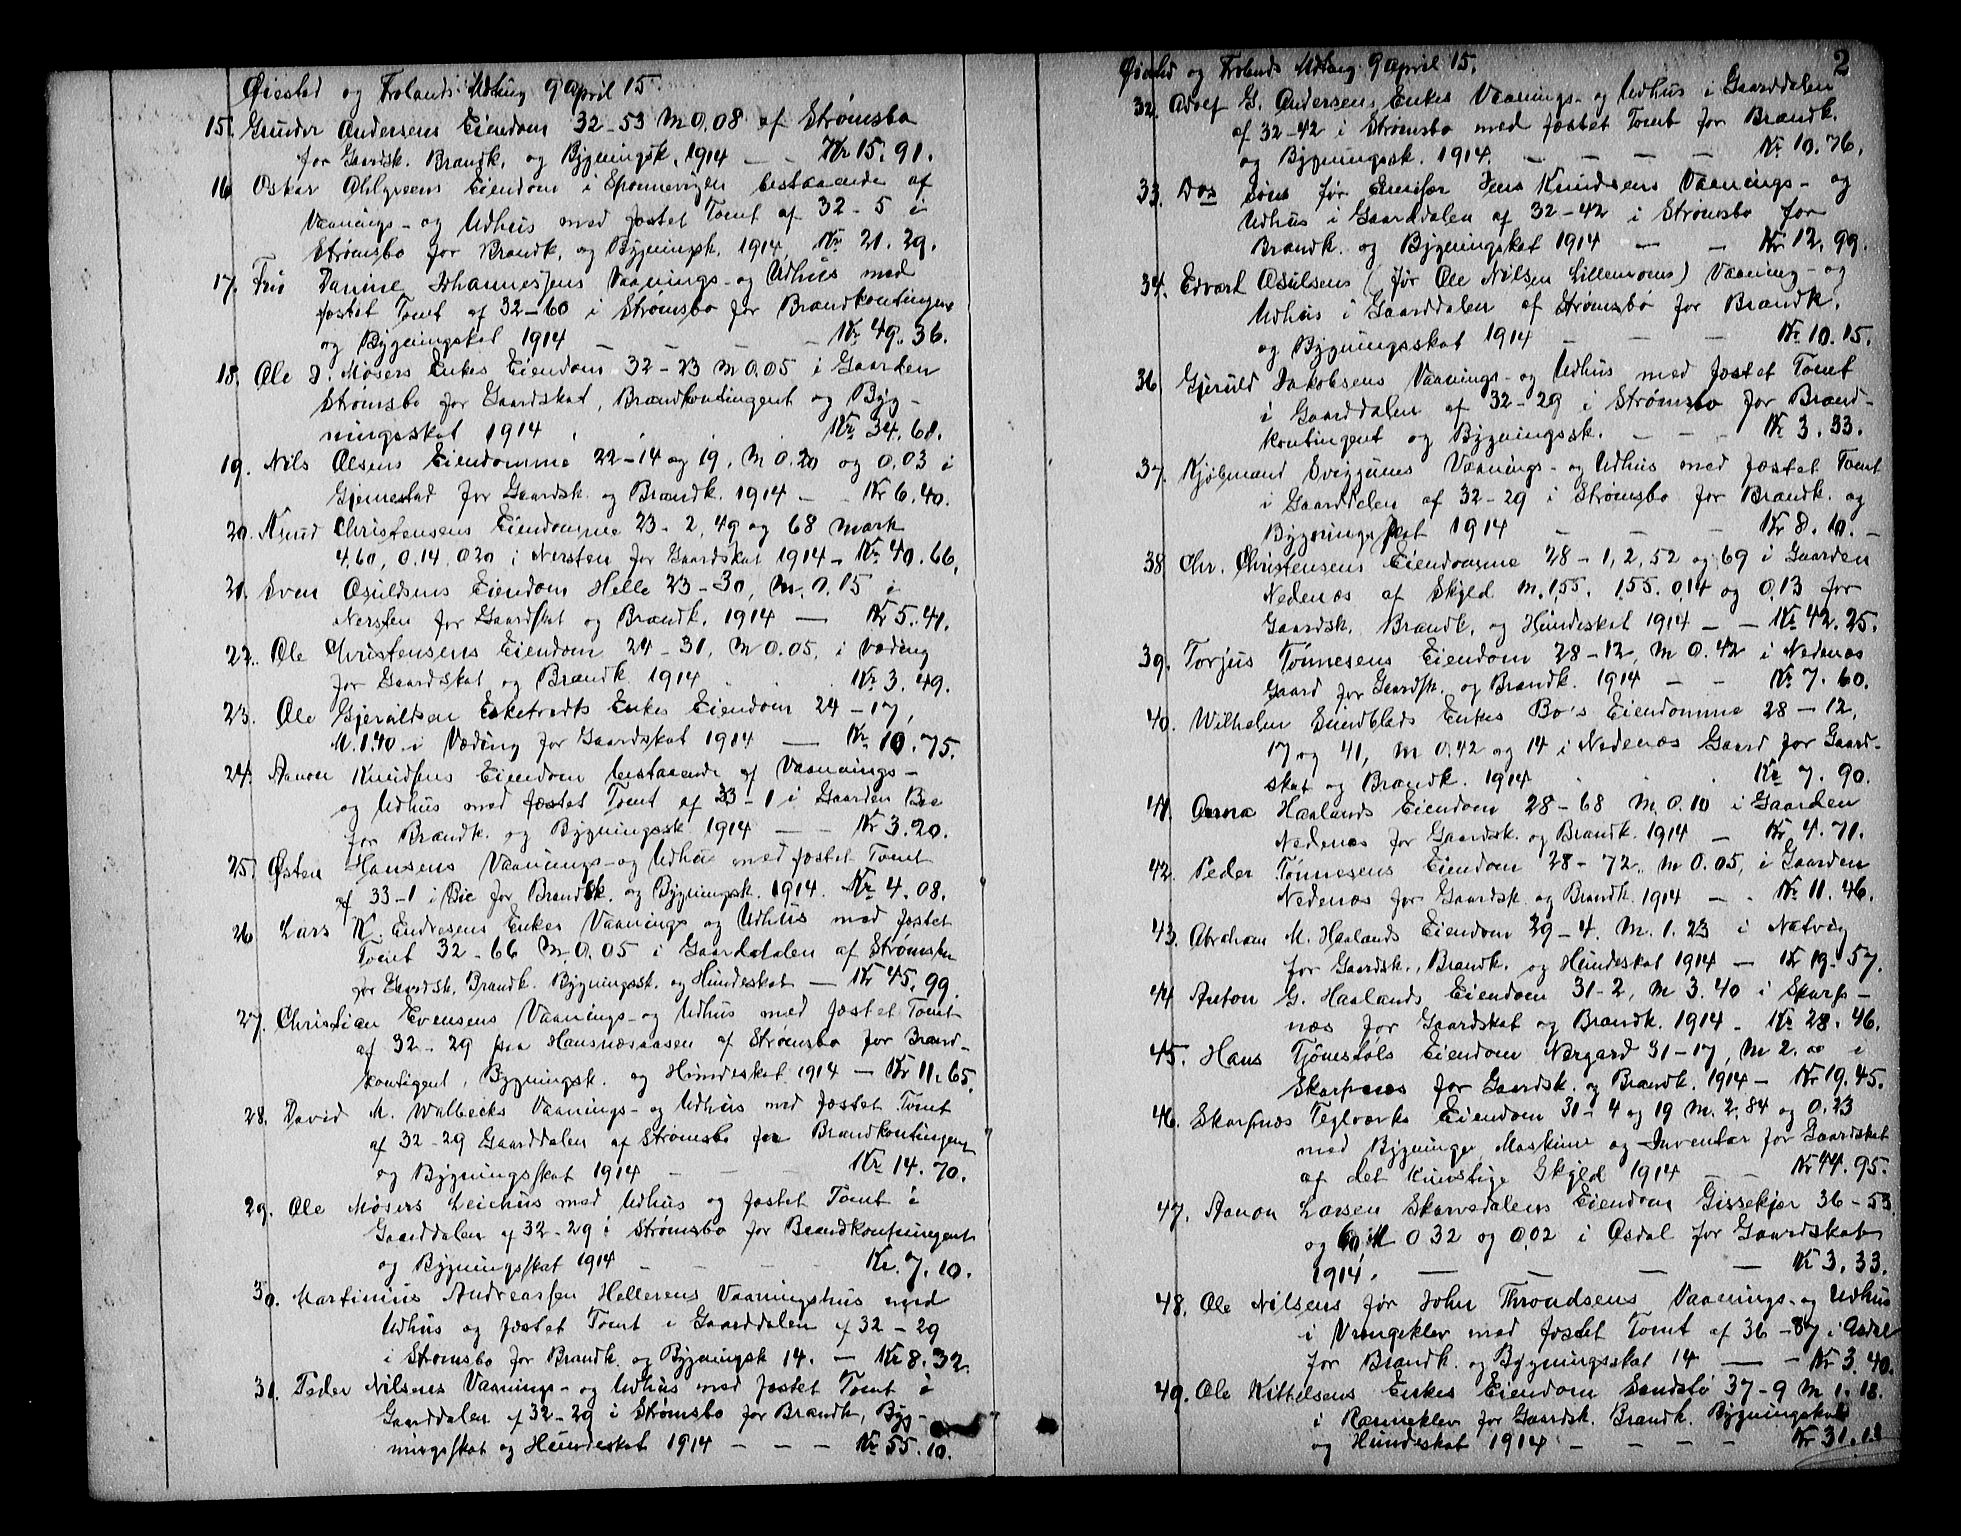 Øiestad og Frolands Udlæg 9 April 15.
15. Gunder Andersens Eiendom 32-53 M 0.08 af Strømsbo
for Gaardsk. Brandk. og Bygningsk. 1914 — — Kr 15.91.
16 Oskar Ahlgreens Eiendom i Sponnevigen bestaaende af
Vaanings- og Udhus med fæstet Tomt af 32-5 i
Strømsbo for Brandk. og Bygningsk. 1914 Kr 21.29.
17. Fru Johannessens Vaanings- og Udhus med
fæstet Tomt af 32-60 i Strømsbo for Brandkontingent
og Bygningskat 1914 — — — — Kr 49.36.
18. Ole J. Møsers Enkes Eiendom 32-23 M 0.05 i Gaarden
Strømsbo for Gaardskat, Brandkontingent og Byg-
ningsskat 1914 . . . Kr 34.68.
19. Nils Olsens Eiendomme 22-14 og 19, M 0.20 og 0.03 i
Gjennestad for Gaardsk. og Brandk. 1914 — - Kr 6.40.
20. Knud Christensens Eiendomme 23-2, 49 og 68 Mark
4,60, 0.14 0.20 i Nersten for Gaardskat 1914 - Kr 40.66.
21. Sven Osuldsens Eiendom Helle 23-30, M. 0.15 i
Nersten for Gaardskat og Brandk. 1914 — Kr 5.41.
22. Ole Christensens Eiendom 24-31, M 0.05, i Væding
for Gaardskat og Brandk. 1914 . . . Kr 3.49.
23. Ole Gjeruldsen Enkes Eiendom 24-17,
M. 1.40 i Væding for Gaardskat 1914 — Kr 10.75.
24. Aanon Knudsens Eiendom bestaaende af Vaanings-
og Udhus med fæstet Tomt af 33-1 i Gaarden Bie
for Brandk. og Bygningssk. 1914 — - Kr 3.20.
25. Østen Hansens Vaanings- og Udhus med fæstet Tomt
af 33-1 i Bie for Brandsk. og Bygningsk. 1914. Kr 4.08.
26 Lars K. Endresens Enkes Vaanings og Udhus med fæstet
Tomt 32-66 M. 0.05 i Gaarddalen af Strømsbo
for Gaardsk. Brandk. Bygningssk. og Hundeskat — Kr 45.99.
27. Christian Evensens Vaanings- og Udhus med fæstet Tomt
af 32-29 paa Hansnæsaasen af Strømsbo for Brand-
kontigent, Bygningsk. og Hundeskat 1914 — Kr 11.65.
28. David M. Walbecks Vaanings- og Udhus med fæstet Tomt
af 32-29 Gaarddalen af Strømsbo for Brandkontingent
og Bygningsskat 1914 — — — Kr 14.70.
29. Ole Møsers med Udhus og fæstet Tomt i
Gaarddalen af 32-29 i Strømsbo for Brandkontingent
og Bygningsskat 1914 — — — Kr. 7.10.
30. Martinius Andreassen Hellerens Vaaningshus med
Udhus og fæstet Tomt i Gaarddalen af 32-29
i Strømsbo for Brandk. og Bygningsk 14. — Kr 8.32.
31. Peder Nilsens Vaanings- og Udhus med fæstet Tomt i
Gaarddalen af 32-29 i Strømsbo for Brandk, Byg-
ningsskat og Hundeskat 1914 — — — Kr 55.10.
2
Øiestad og Frolands Udlæg 9 April 15.
32. Adolf G. Andersens Enkes Vaanings- og Udhus i Gaarddalen
af 32-42 i Strømsbo med fæstet Tomt for Brandk.
og Bygningssk. 1914. — — — — Kr 10.76.
33. Jens Knudsens Vaanings- og
Udhus i Gaarddalen af 32-42 i Strømsbo for
Brandk. og Bygningskat 1914 — — Kr 12.99.
34. Edvart Osulsens (før Ole Nilsen Lillemoens) Vaaning- og
Udhus i Gaarddalen af Strømsbo for Brandk.
og Bygningsskat 1914 — — — Kr. 10.15.
36. Gjeruld Jakobsens Vaanings- og Udhus med fæstet Tomt
i Gaarddalen af 32-29 i Strømsbo for Brand-
kontingent og Bygningssk. — — — Kr 3.33.
37. Vaanings- og Udhus med fæstet Tomt
i Gaarddalen af 32-29 i Strømsbo for Brandk. og
Bygningsskat 1914 — — — Kr 8.10. -
38 Chr. Christensens Eiendomme 28-1, 2, 52 og 69 i Gaarden
Nedenæs af Skyld M. 1.55. 1.55. 0.14 og 0.13 for
Gaardsk. Brandk. og Hundeskat 1914 — — Kr 42.25.
39. Torjus Tønnesens Eiendom 28-12, M 0.42 i Nedenæs
Gaard for Gaardsk. og Brandk. 1914 — — Kr 7.60.
40. Wilhelm Sundblads Enkes Bo's Eiendomme 28-12,
17 og 41, M 0.42 og 14 i Nedenæs Gaard for Gaard-
skat og Brandk. 1914 . . . Kr 7.90.
41. Haalands Eiendom 28-68 M. 0.10 i Gaarden
Nedenæs for Gaardsk. og Brandk. 1914 — Kr. 4.71.
42. Peder Tønnesens Eiendom 28-72, M 0.05, i Gaarden
Nedenæs for Gaardsk. og Brandk. 1914 — - Kr 11.46.
43. Abraham M. Haalands Eiendom 29-4. M. 1.23 i Natvig
for Gaardsk., Brandk. og Hundeskat 1914 — Kr 19.57.
44. Anton G. Haalands Eiendom 31-2, M 3.40 i Skarp-
næs for Gaardskat og Brandk. 1914 - Kr 28.46.
45. Hans Tjømstøls Eiendom Nergard 31-17, M 2. i
Skarpnæs for Gaardsk. og Brandk. 1914 — Kr 19.45.
46. Skarpnæs Teglværks Eiendom 31-4 og 19 M. 2.84 og 0.23
med Bygninge Maskine og Inventar for Gaardskat
af det kunstige Skyld 1914 — — Kr 44.95.
47. Aanon Larsen Skarvedalens Eiendom Gissekjær 36-53
og 60 M 0.32 og 0.02 i Øsdal for Gaardskat
1914. — — — — Kr 3.33.
48. Ole Nilsens før John Throndsens Vaanings- og Udhus
i Vrengeklev med fæstet Tomt af 36-87 i Asdal
for Brandk. og Bygningsskat 14 — - Kr 3.40.
49. Ole Kittelsens Enkes Eiendom Sandstø 37-9 M 1.18.
i Ranneklev for Gaardsk. Brandk. Bygningskat
og Hundeskat 1914 — — — — Kr 31.18